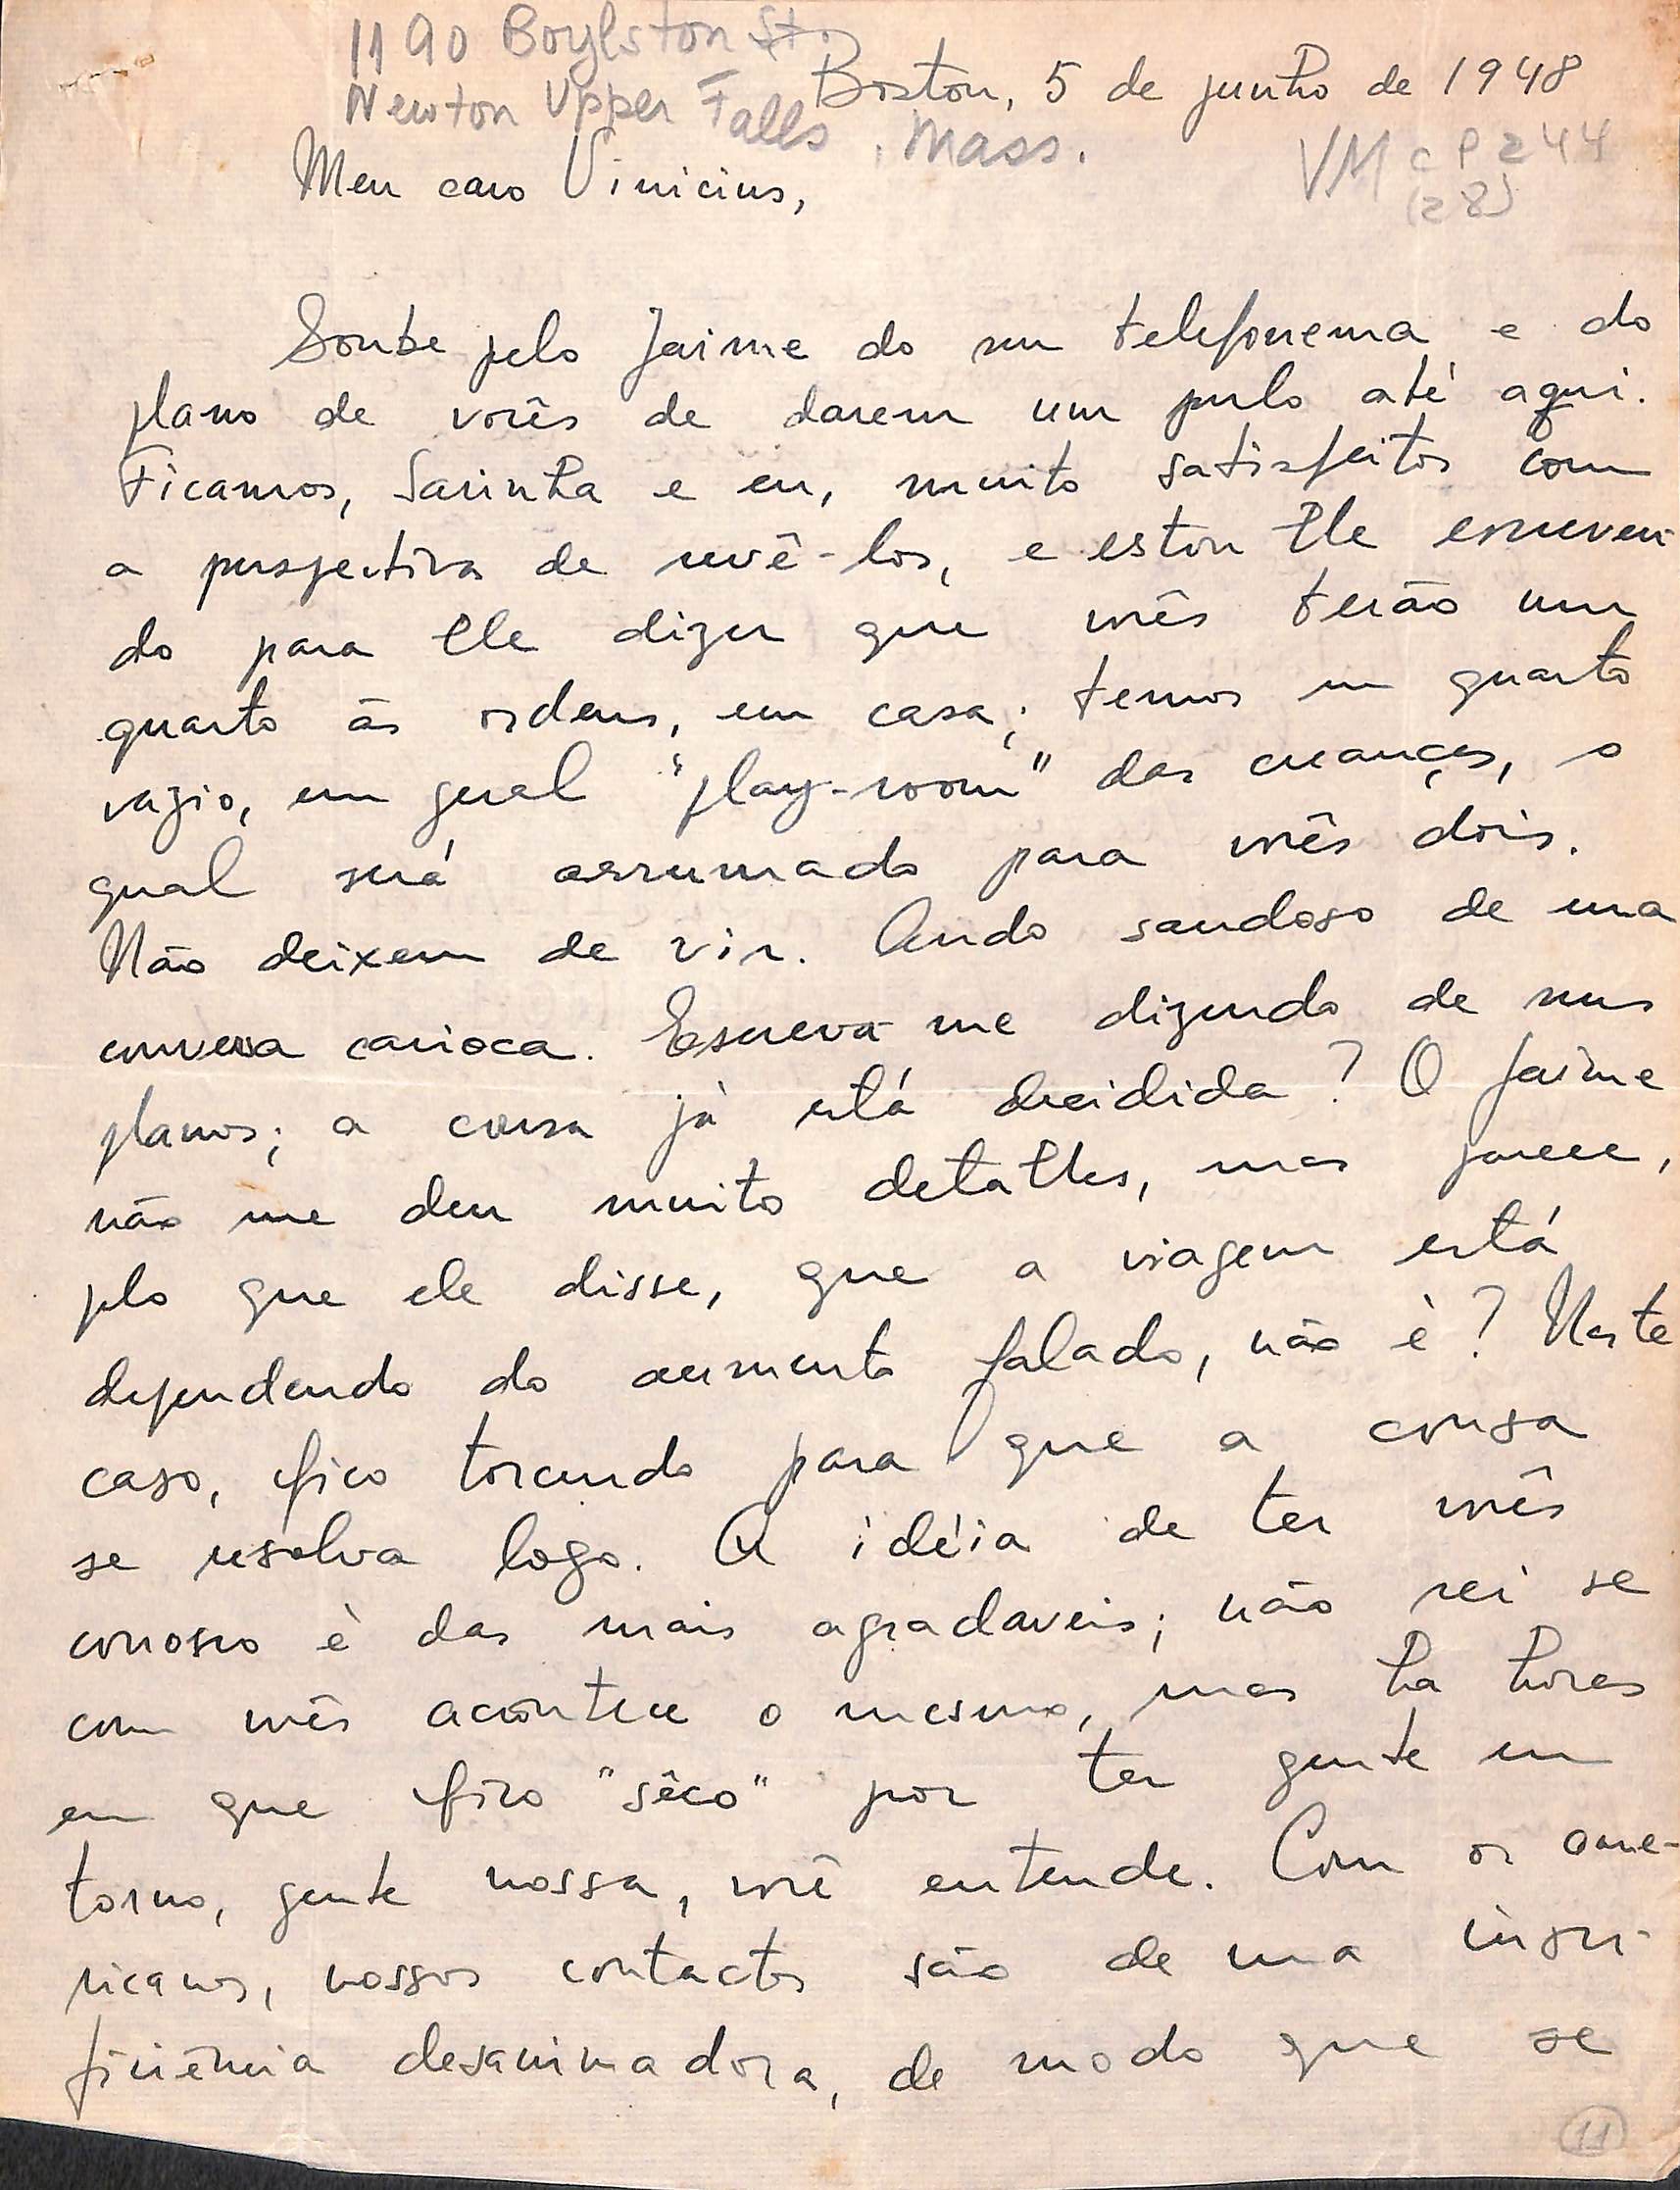 1190 Boylston St.
Newton Upper Falls, Mass.
Boston, 5 de junho de 1948
VM cp 244
(28)
Meu caro Vinicius,
Soube pelo Jaime do seu telefonema e do
plano de vocês de darem um pulo até aqui.
Ficamos, Sarinha e eu, muito satisfeitos com
a perspectiva de revê-los, e estou lhe escreven-
do para lhe dizer que vocês terão um
quarto às ordens, em casa; temos um quarto
vazio, em geral "play-room" das crianças, o
qual será arrumado para vocês dois.
Não deixem de vir. Ando saudoso de uma
conversa carioca. Escreva-me dizendo de seus
planos; a cousa já está decidida? O Jaime
não me deu muito detalhes, mas parece,
pelo que ele disse, que a viagem está
dependendo do aumento falado, não é? Neste
caso, fico torcendo para que a cousa
se resolva logo. A idéia de ter vocês
conosco è das mais agradaveis; não sei se
com vocês acontece o mesmo, mas ha horas
em que fico "sêco" por ter gente em
torno, gente nossa, você entende. Com os ame-
ricanos, nossos contactos são de uma insu-
ficiência desanimadora, de modo que se
11